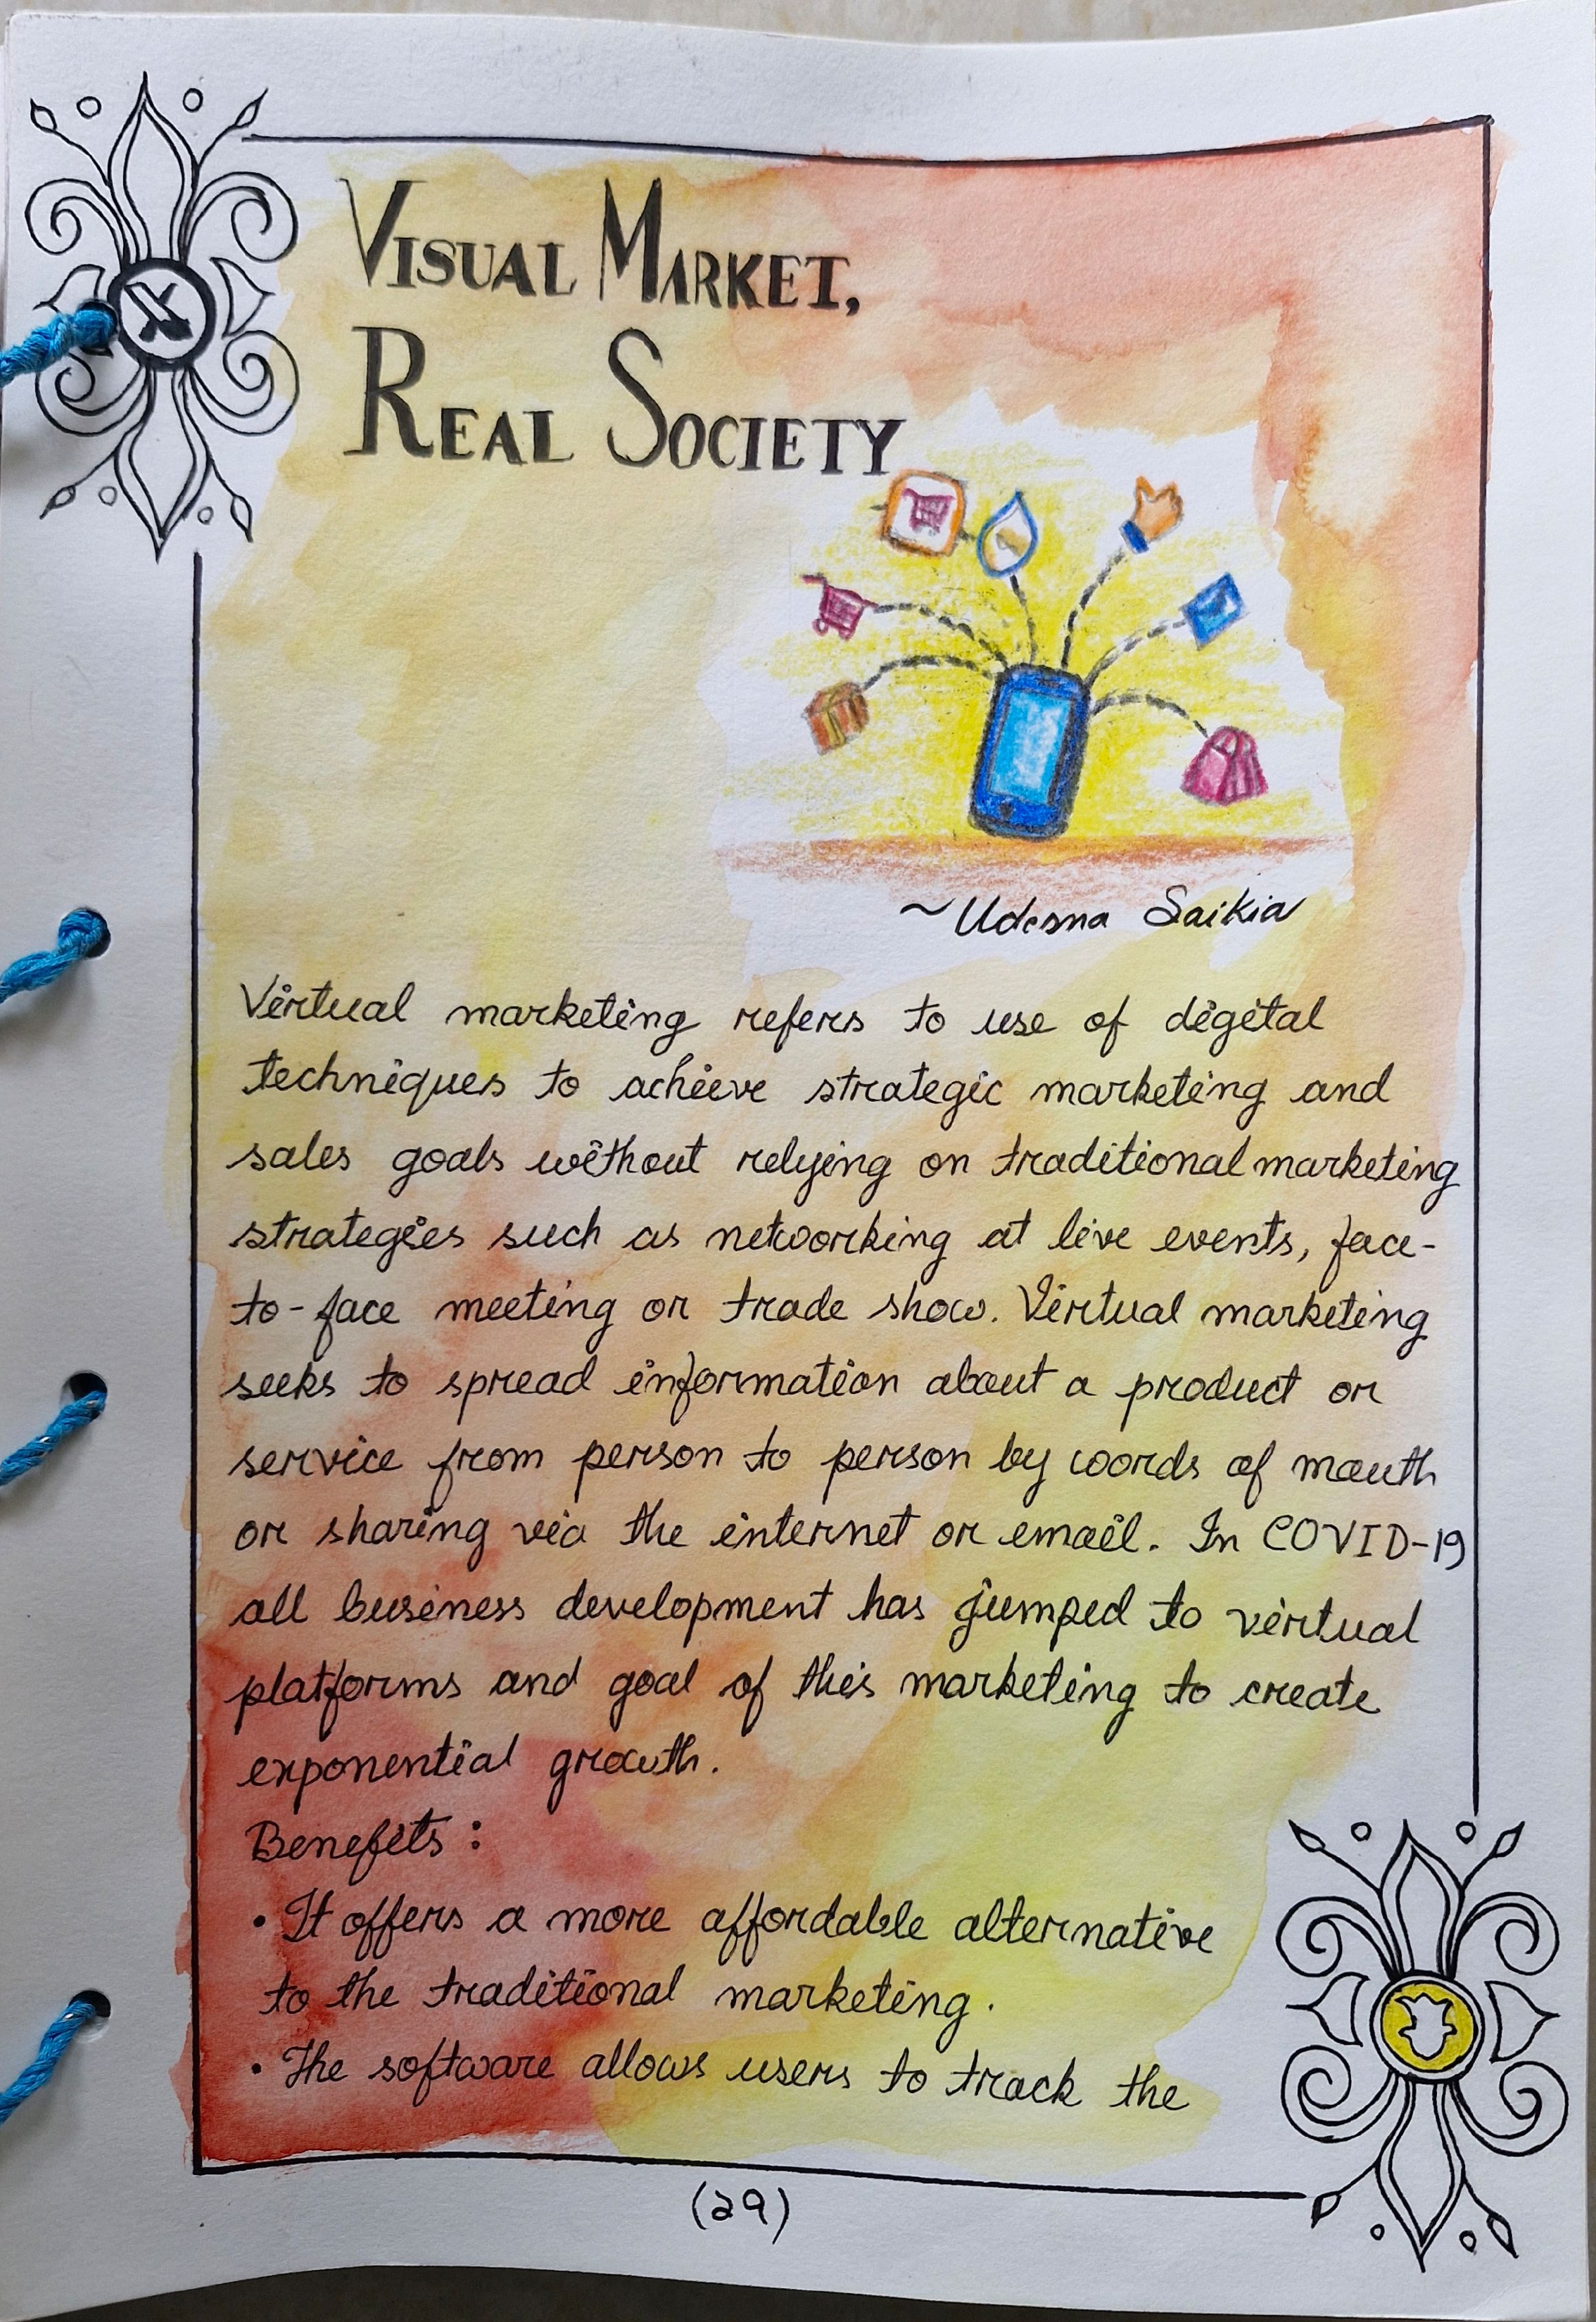 VISUAL MARKET,
REAL SOCIETY
~ Udesna Saikia
Virtual marketing refers to use of digital
techniques to achieve strategic marketing and
sales goals without relying on traditional marketing
strategies such as networking at live events, face-
to-face meeting or trade show. Virtual marketing
seeks to spread information about a product or
service from person to person by words of mouth
or sharing via the internet or email. In COVID-19
all business development has jumped to virtual
platforms and goal of this marketing to create
exponential growth.
Benefits :
• It offers a more affordable alternative
to the traditional marketing.
• The software allows users to track the
(29)